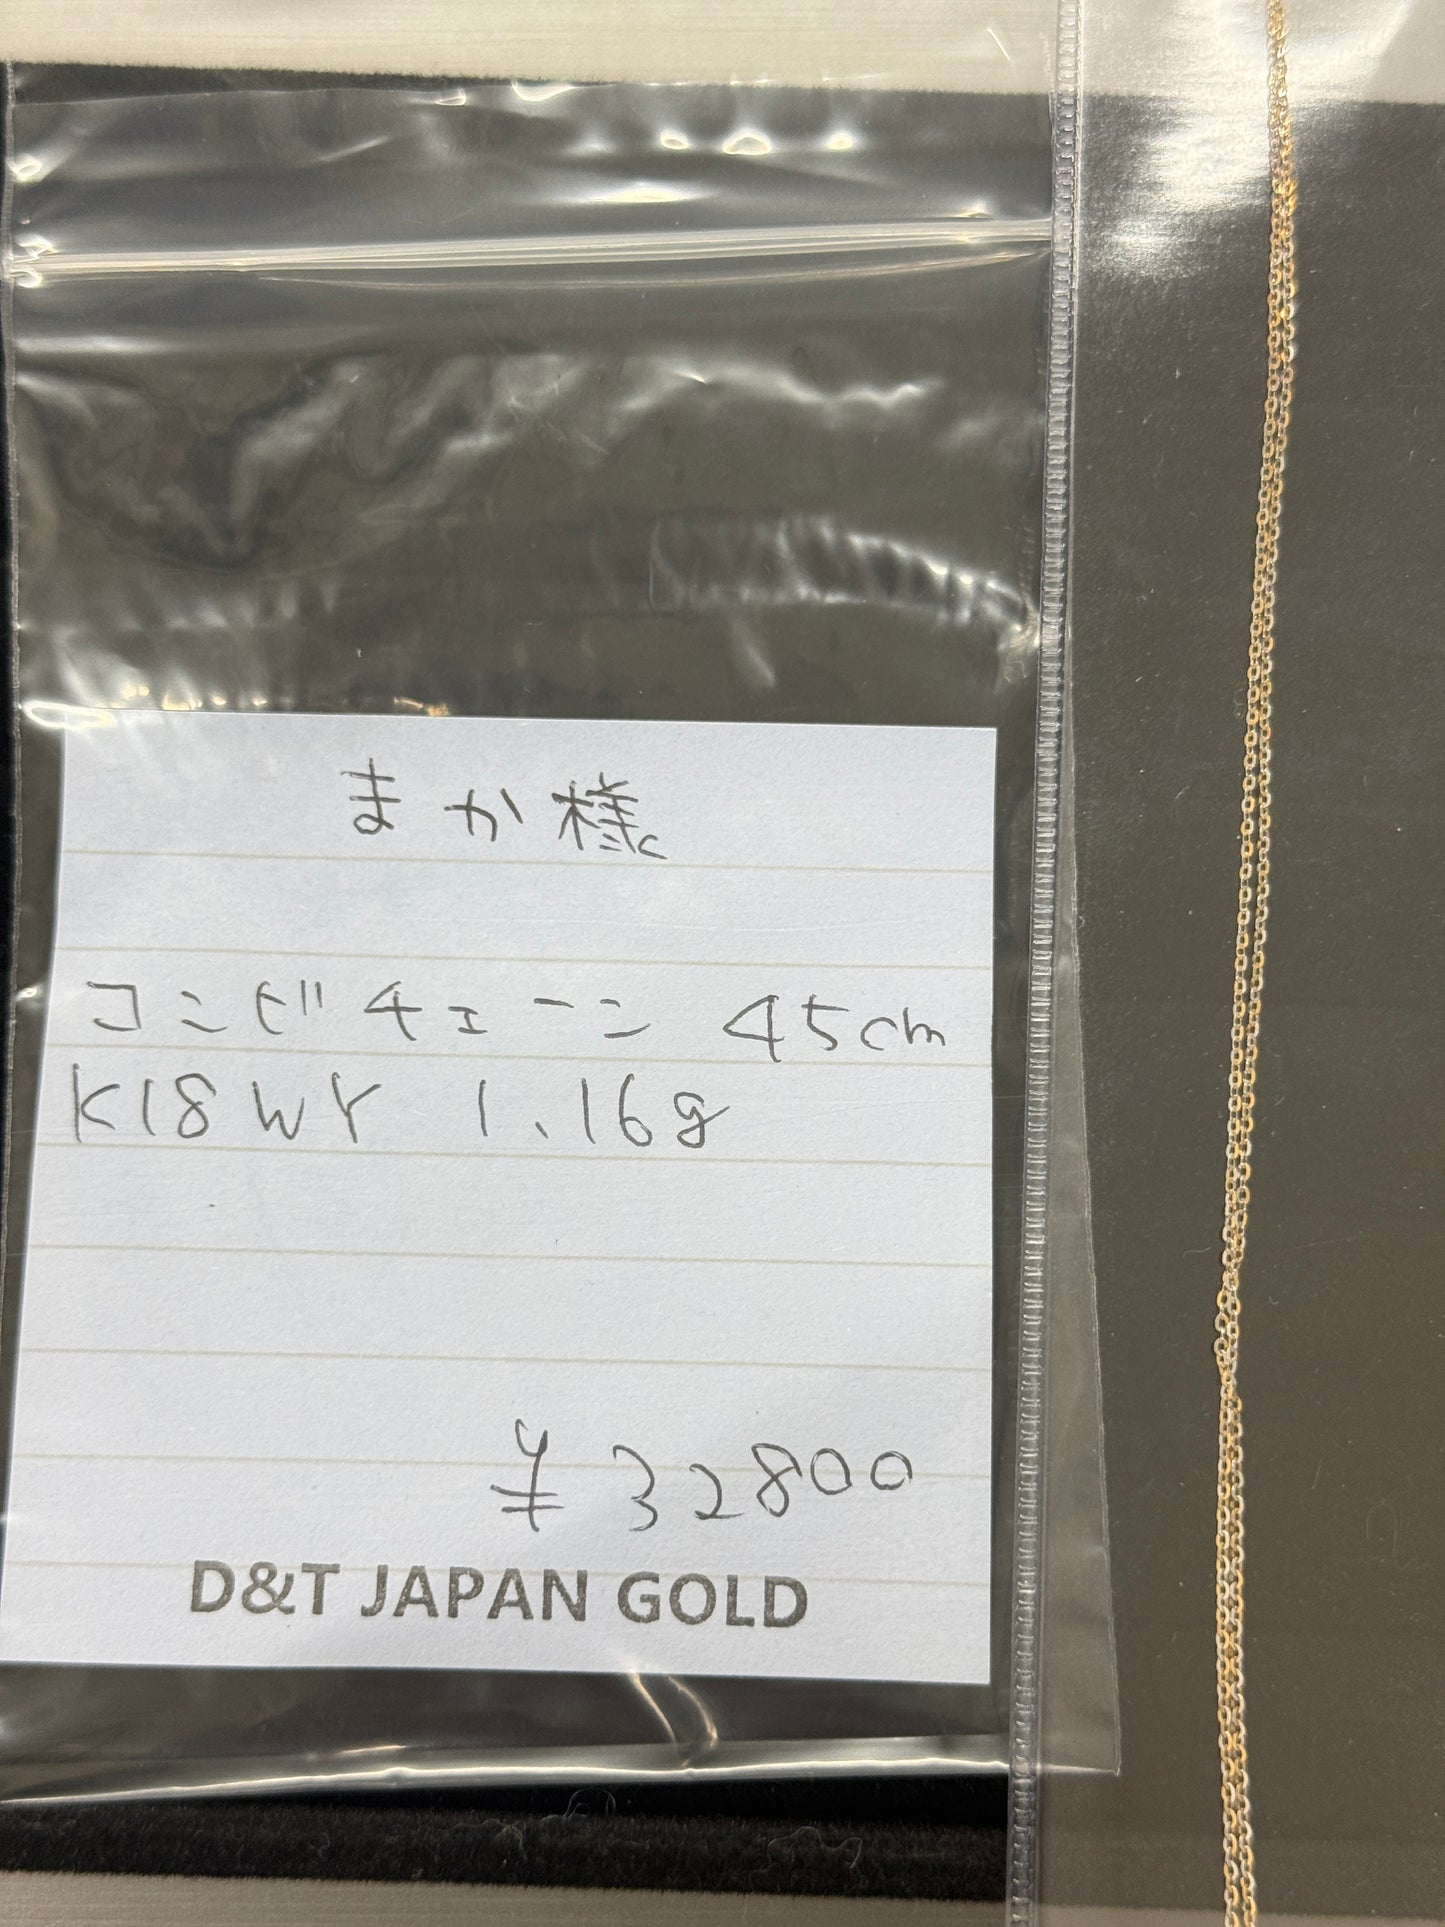 まか様
コンビチェーン 45cm
K18WY 1.16g
¥32800
D&T JAPAN GOLD